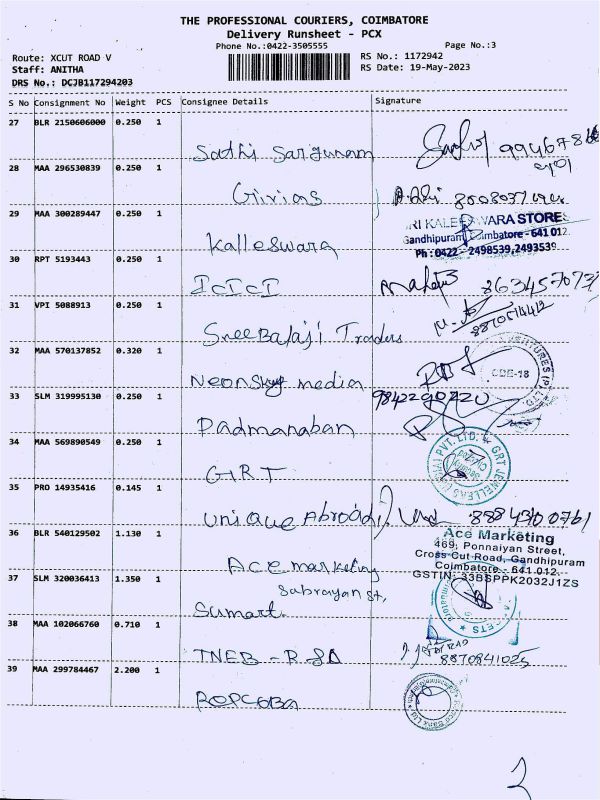 THE PROFESSIONAL COURIERS, COIMBATORE
Delivery Runsheet - PCX
Phone No.:0422-3505555
Page No.:3
Route: XCUT ROAD V
RS No.: 1172942
Staff: ANITHA
RS Date: 19-May-2023
DRS No.: DCJB117294203
S No Consignment No Weight PCS Consignee Details Signature
27 BLR 2150606000 0.250 1
Sathi Sargunam
28 MAA 296530839 0.250 1
29 MAA 300289447 0.250 1
Kalleswara
KALEESWARA STORES
Gandhipuram, Coimbatore - 641 012.
Ph : 0422 - 2498539, 2493539
30 RPT 5193443 0.250 1
ICICI
31 VPI 5088913 0.250 1
Sree Balaji Traders
32 MAA 570137852 0.320 1
Neonsky media
CBE-18
33 SLM 319995130 0.250 1
9842290220
Padmanaban
34 MAA 569890549 0.250 1
GRT
GRT JEWELLERS
PVT. LTD.
35 PRO 14935416 0.145 1
Unique Abroad
8884300761
36 BLR 540129502 1.130 1
Ace marketing
Ace Marketing
469, Ponnaiyan Street,
Cross Cut Road, Gandhipuram
Coimbatore - 641 012.
GSTIN: 33BSPPK2032J1ZS
37 SLM 320036413 1.350 1
Sabrayan St,
Sumart
38 MAA 102066760 0.710 1
TNEB - R
8870841025
39 MAA 299784467 2.200 1